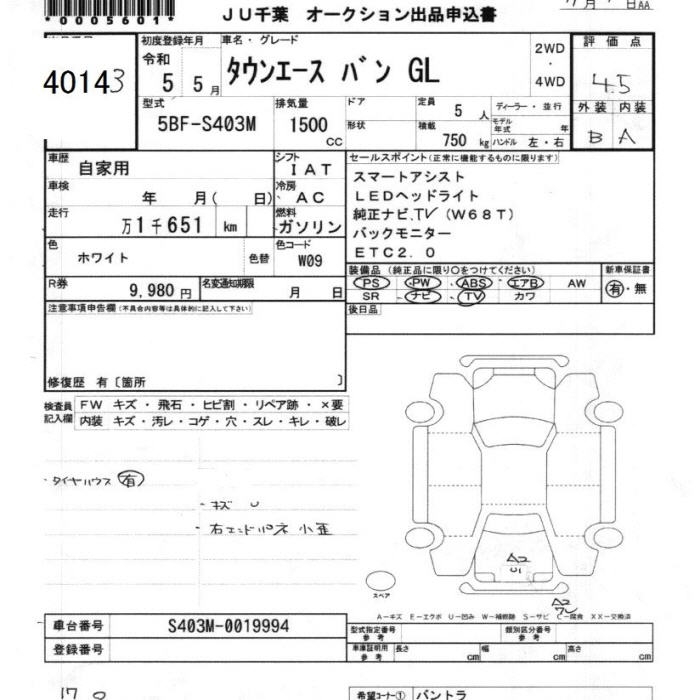 *0005601*
JU千葉 オークション出品申込書
初度登録年月 車名・グレード
令和
5 5月
タウンエース バン GL
2WD
・
4WD
評価点
4.5
40143
型式 排気量 ドア 定員 5 人 ディーラー・並行
5BF-S403M 1500 CC
形状 積載 750 kg
モデル年式 年
ハンドル 左・右
外装 内装
B A
車歴 自家用
シフト IAT
セールスポイント(正常に機能するものに限ります)
車検 年 月( 日)
冷房 AC
スマートアシスト
LEDヘッドライト
純正ナビ、TV(W68T)
バックモニター
ETC2.0
走行 万1千651 km
燃料 ガソリン
色 ホワイト 色替
色コード W09
R券 9,980円
名変通知期限 月 日
装備品(純正品に限り○をつけてください)
PS PW ABS エアB AW
SR ナビ TV カワ
新車保証書
有・無
注意事項申告欄(不具合内容等は具体的に記入して下さい)
後日品
修復歴 有〔箇所 〕
検査員記入欄
FW キズ・飛石・ヒビ割・リペア跡・×要
内装 キズ・汚レ・コゲ・穴・スレ・キレ・破レ
・タイヤハウス 有
・キズ U
・右エンドパネ 小歪
A2
U1
スペア
A2
A-キズ E-エクボ U-凹み W-補修跡 S-サビ C-腐食 XX-交換済
車台番号 S403M-0019994
登録番号
型式指定番号 参考
類別区分番号 参考
車庫証明用 参考 長さ cm 幅 cm 高さ cm
希望コーナー① バントラ